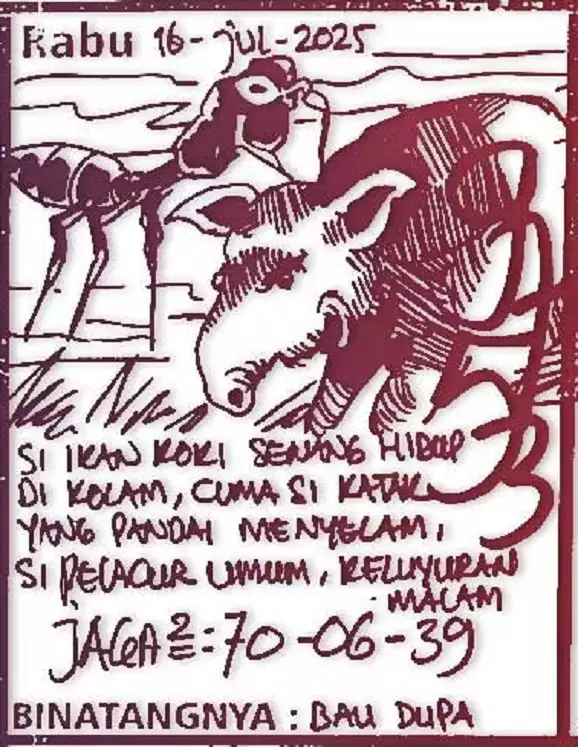 Rabu 16-JUL-2025
SI IKAN KOKI SENANG HIDUP
DI KOLAM, CUMA SI KATAK
YANG PANDAI MENYELAM,
SI PELACUR UMUM, KELUYURAN
MALAM
JAGA2=: 70-06-39
BINATANGNYA : BAU DUPA